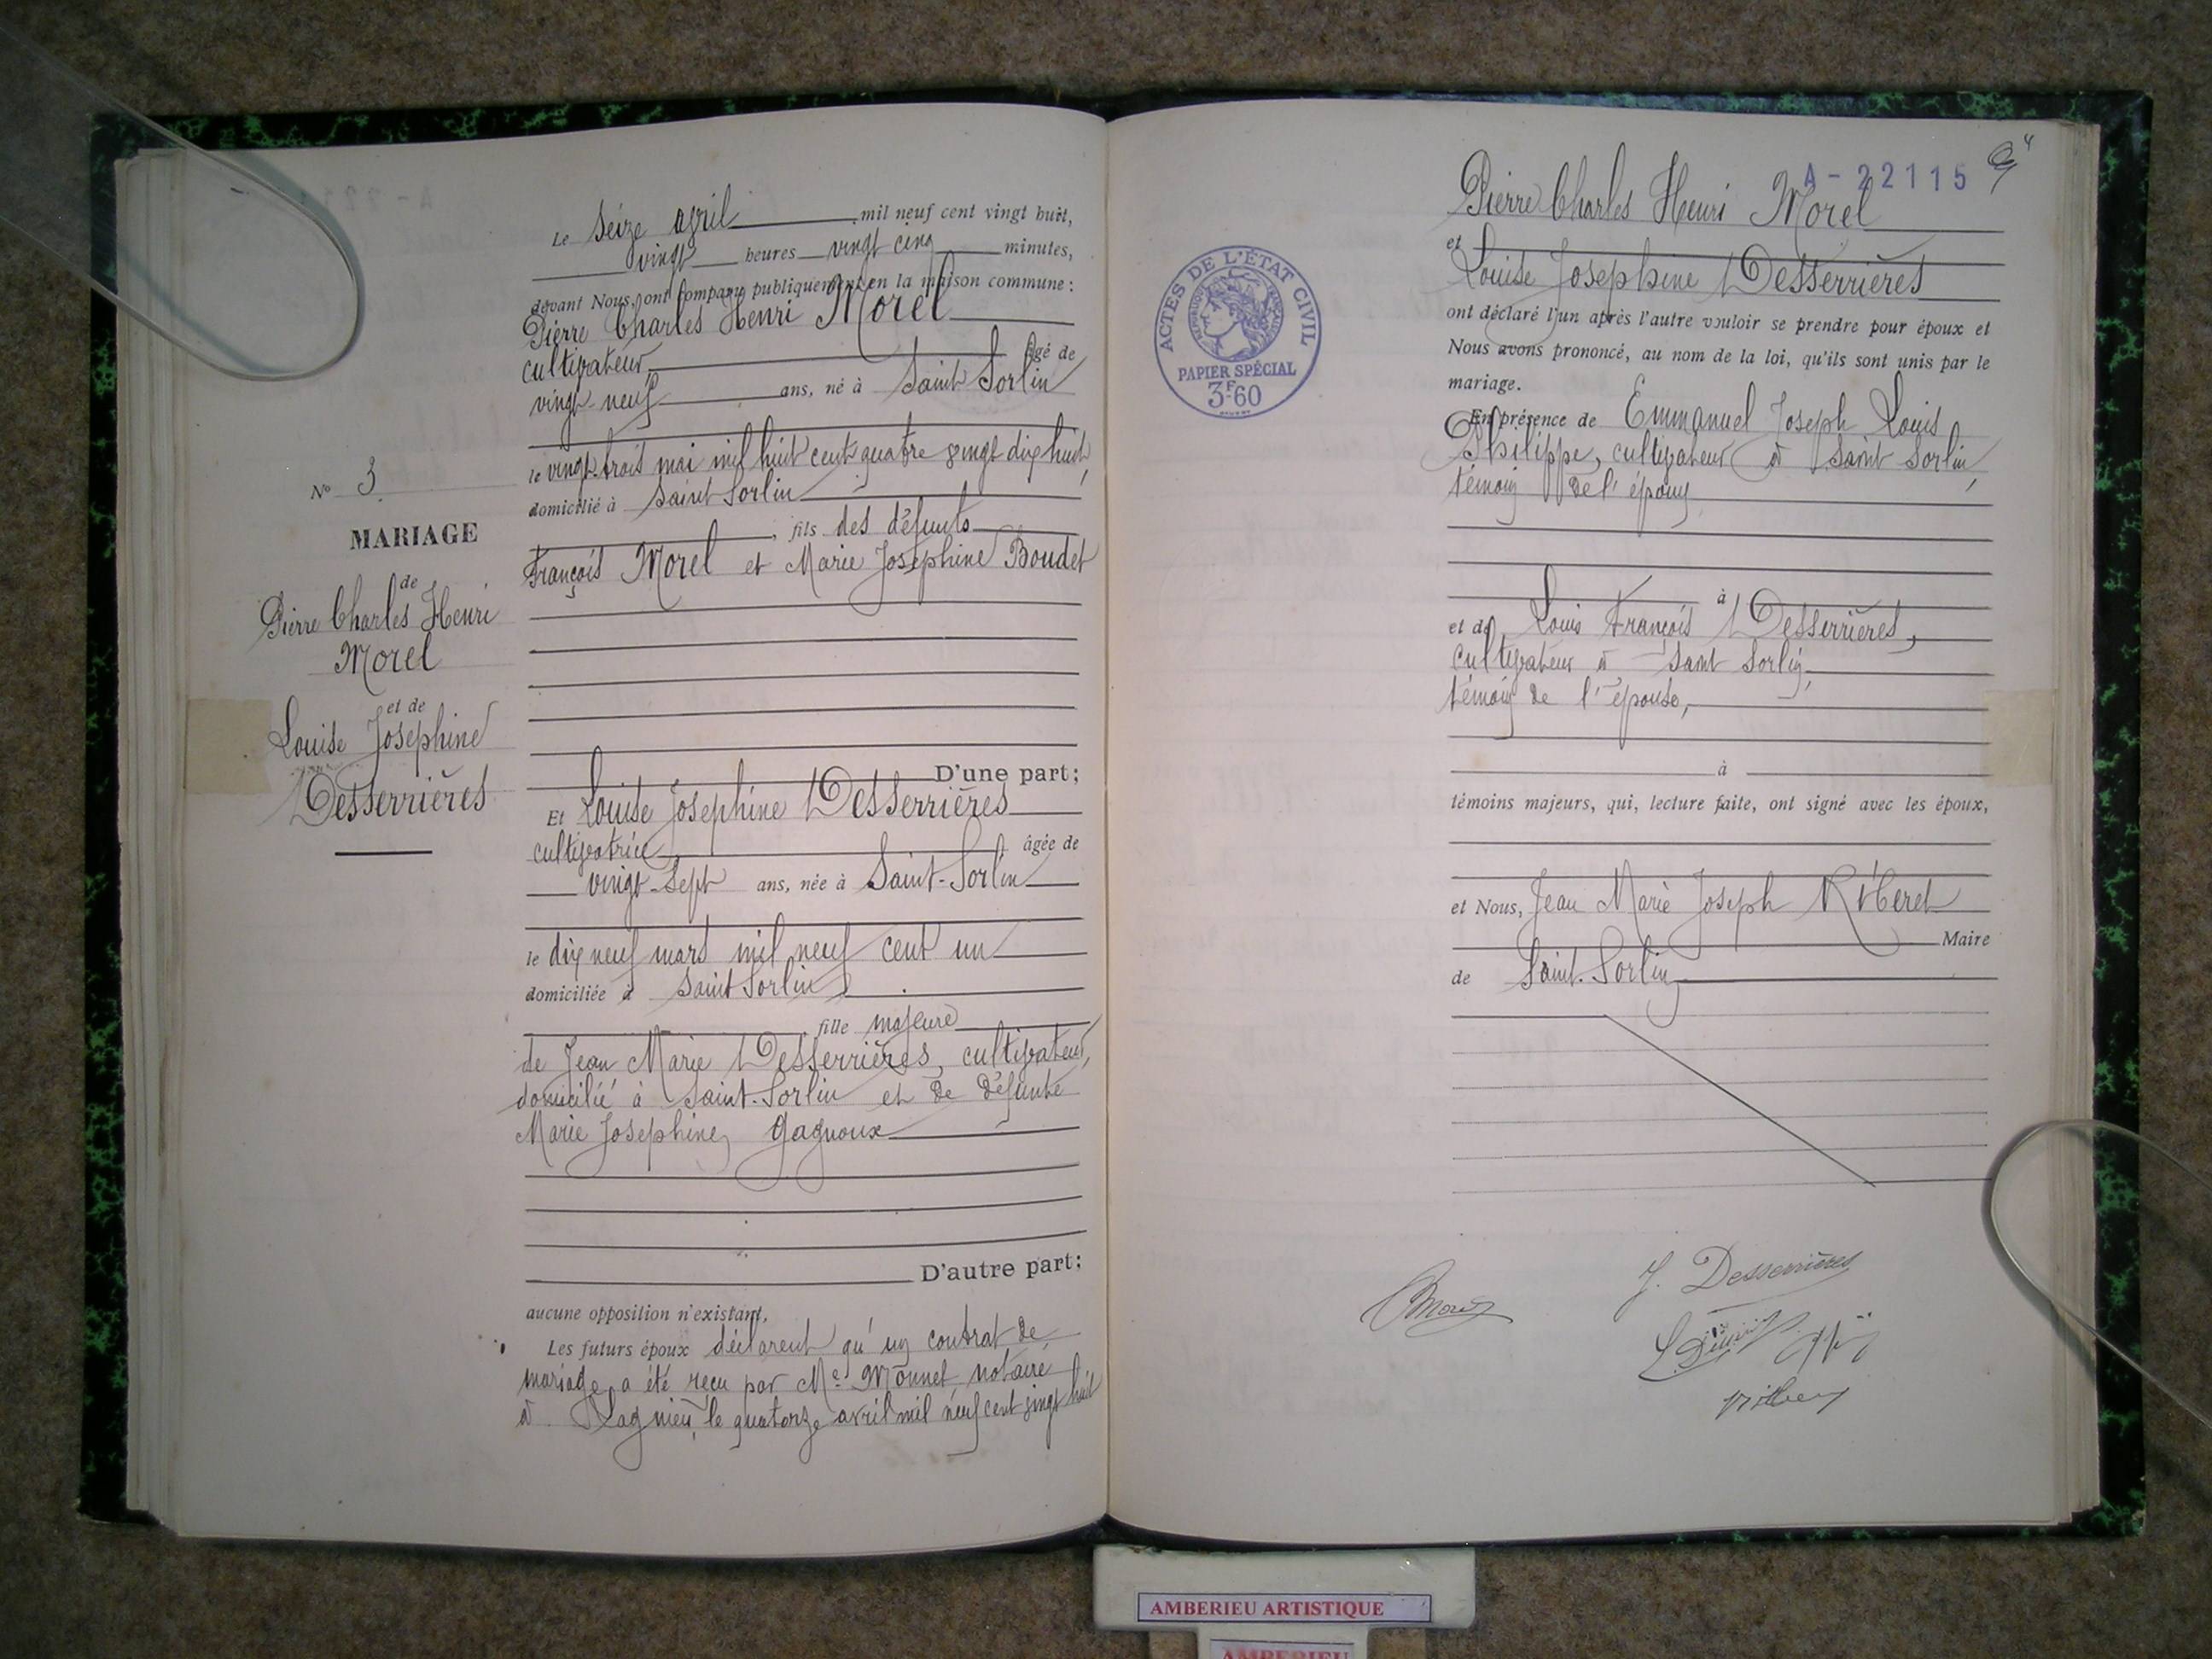 Le seize avril mil neuf cent vingt huit,
vingt heures vingt cinq minutes,
devant Nous, ont comparu publiquement en la maison commune :
Pierre Charles Henri Morel
cultivateur, âgé de
vingt-neuf ans, né à Saint Sorlin
le vingt-trois mai mil huit cent quatre vingt dix huit,
domicilié à Saint Sorlin
, fils des défunts
François Morel et Marie Josephine Boudet
D'une part;
Et Louise Josephine Desserrières
cultivatrice, âgée de
vingt-sept ans, née à Saint-Sorlin
le dix neuf mars mil neuf cent un
domiciliée à Saint Sorlin
, fille majeure
de Jean Marie Desserrières, cultivateur,
domicilié à Saint-Sorlin et de défunte
Marie Josephine Gagnoux
D'autre part;
aucune opposition n'existant,
Les futurs époux déclarent qu'un contrat de
mariage a été reçu par Me Monnet notaire
à Lagnieu, le quatorze avril mil neuf cent vingt huit
No 3
MARIAGE
de
Pierre Charles Henri
Morel
et de
Louise Josephine
Desserrières
A-22115
Pierre Charles Henri Morel
et
Louise Josephine Desserrières
ont déclaré l'un après l'autre vouloir se prendre pour époux et
Nous avons prononcé, au nom de la loi, qu'ils sont unis par le
mariage.
En présence de Emmanuel Joseph Louis
Philippe, cultivateur à Saint Sorlin,
témoin de l'époux
à
et de Louis François Desserrières,
cultivateur à Saint Sorlin,
témoin de l'épouse,
à
témoins majeurs, qui, lecture faite, ont signé avec les époux,
et Nous, Jean Marie Joseph
Maire
de Saint-Sorlin
ACTES DE L'ÉTAT CIVIL
RÉPUBLIQUE FRANÇAISE
PAPIER SPÉCIAL
3F60
J. Desserrières
AMBERIEU ARTISTIQUE
AMBERIEU